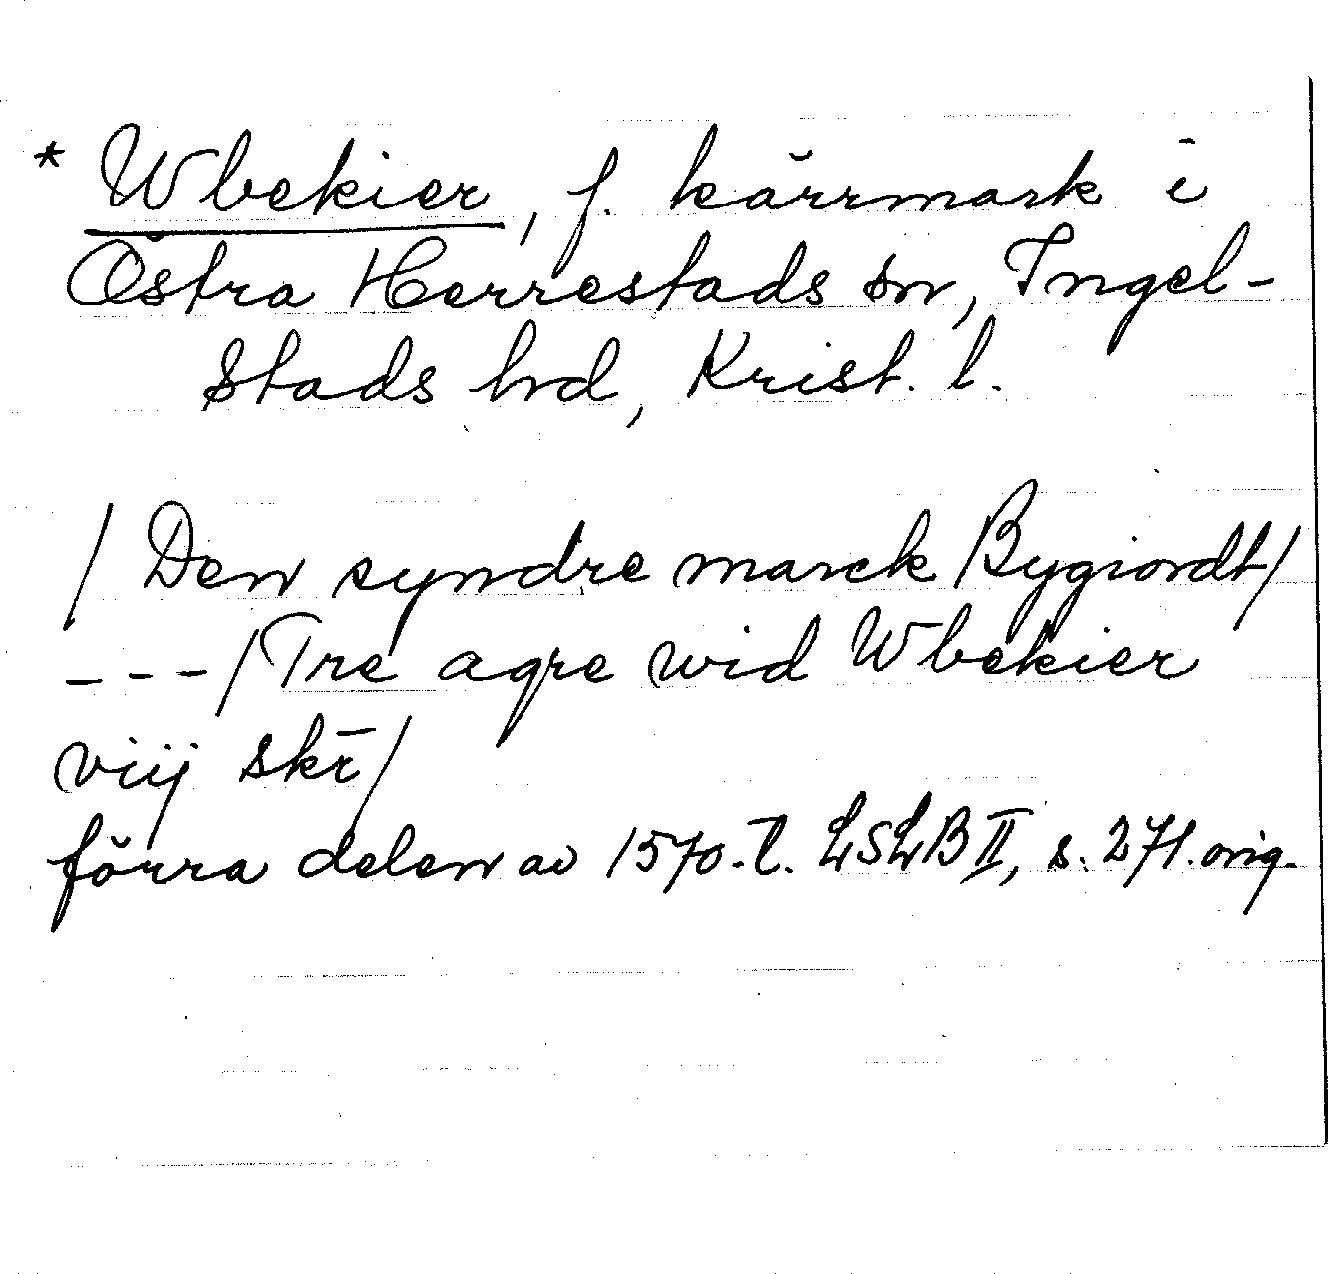 * Wbekier, f. kärrmark i
Östra Herrestads sn, Ingel-
stads hd, Krist. l.
/Den syndre marck Bygiordt/
---/Tre agre wid Wbekier
viij skr̄/
förra delen av 1570-t. LSLB II, s. 271. orig.